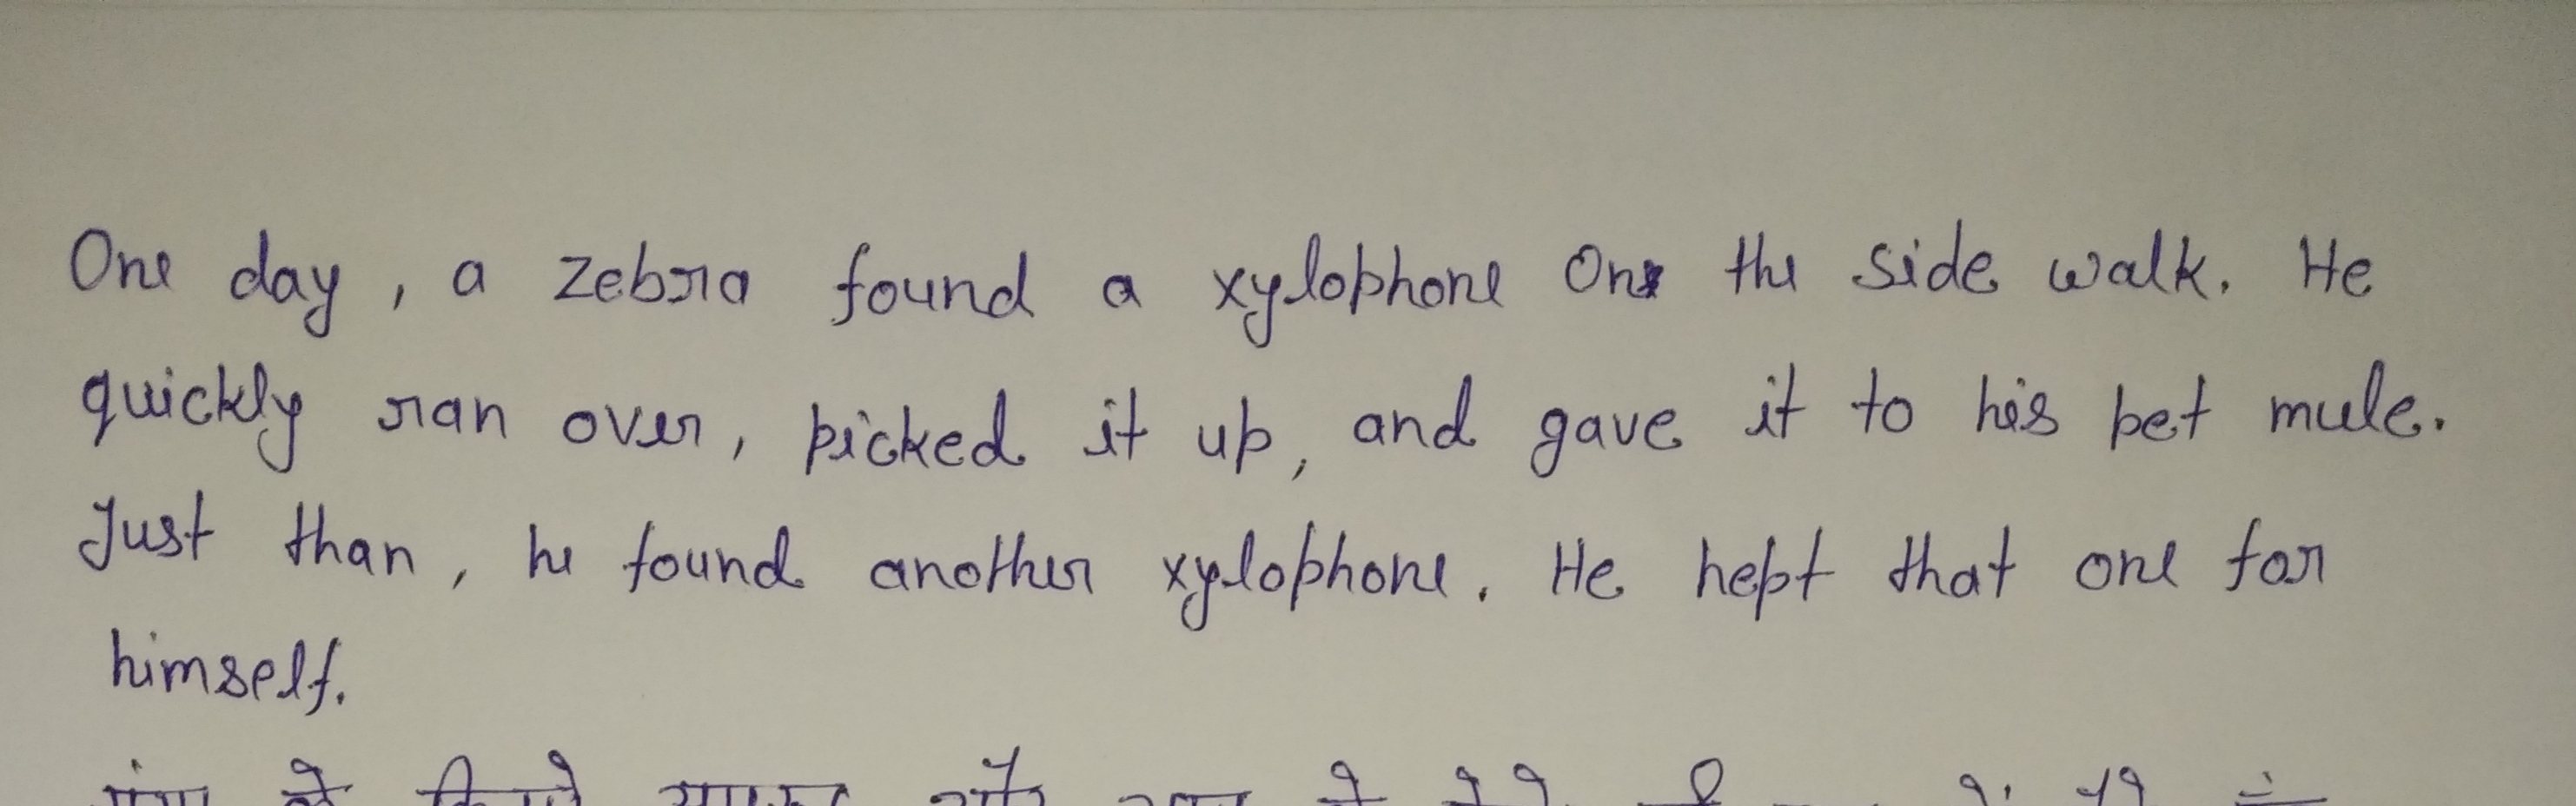 One day, a zebra found a xylophone On the side walk. He
quickly ran over, picked it up, and gave it to his pet mule.
Just than, he found another xylophone. He hept that one for
himself.